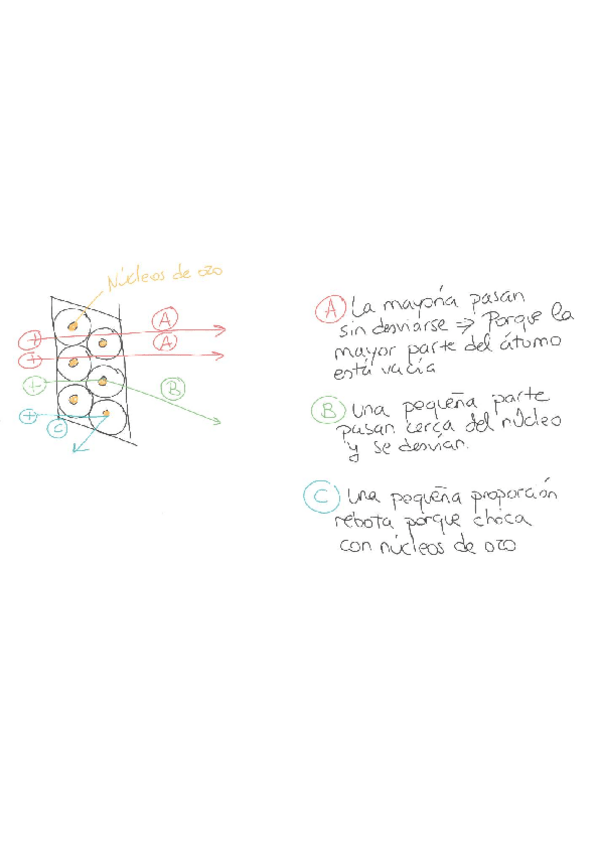 Núcleos de oro
A
A
B
C
+
+
+
+
A La mayoría pasan
sin desviarse => Porque la
mayor parte del átomo
está vacía
B Una pequeña parte
pasan cerca del núcleo
y se desvían.
C Una pequeña proporción
rebota porque choca
con núcleos de oro